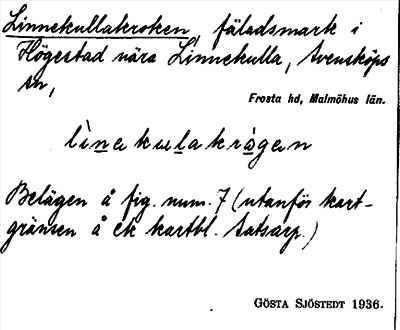 Linnekullakroken, fäladsmark i
Högestad nära Linnekulla, Svensköps
sn,
Frosta hd, Malmöhus län.
lìnakulakrågan
Belägen å fig. num. 7 (utanför kart-
gränsen å ek kartbl. Satsarp.)
GÖSTA SJÖSTEDT 1936.